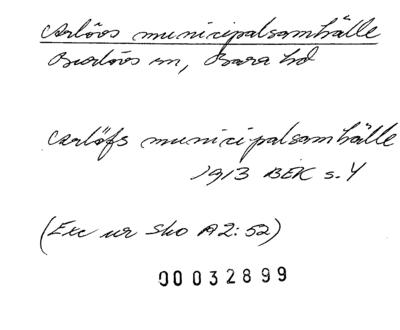 Arlövs municipalsamhälle
Burlövs sn, Bara hd
Arlöfs municipalsamhälle
1913 BEK s. 4
(Exc ur Sko A2:52)
00032899